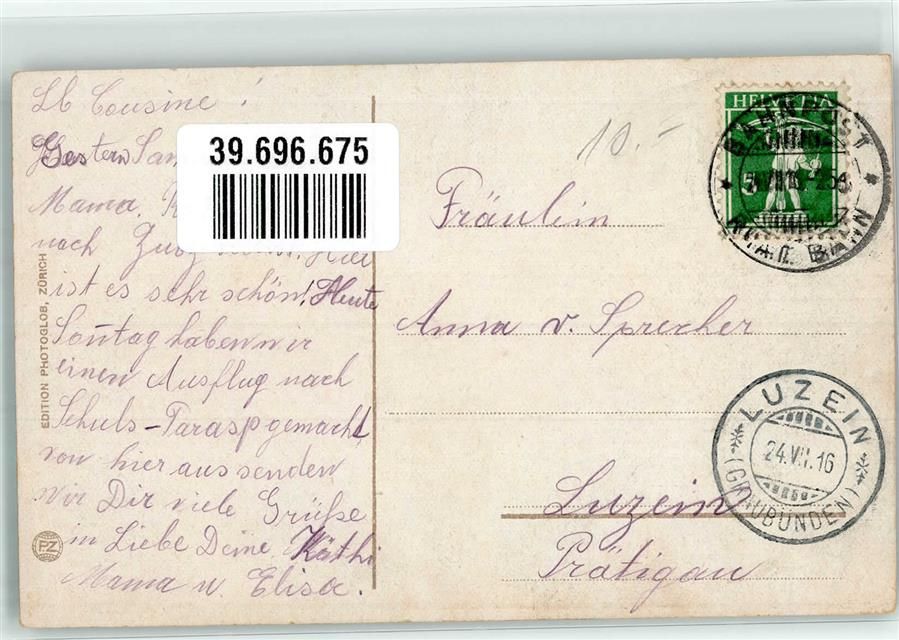 Lb Cousine!
Gestern
Mama,
nach Zuoz Hier
ist es sehr schön! Heute
Sontag haben wir
einen Ausflug nach
Schuls-Tarasp gemacht,
von hier aus senden
wir Dir viele Grüße
in Liebe Deine Käthi
Mama u. Elisa.
39.696.675
EDITION PHOTOGLOB, ZÜRICH
PZ
10.-
HELVETIA
5
BAHNPOST
Fräulein
Anna v. Sprecher
Luzein
Prätigau
LUZEIN
24.VII.16
(GRAUBÜNDEN)